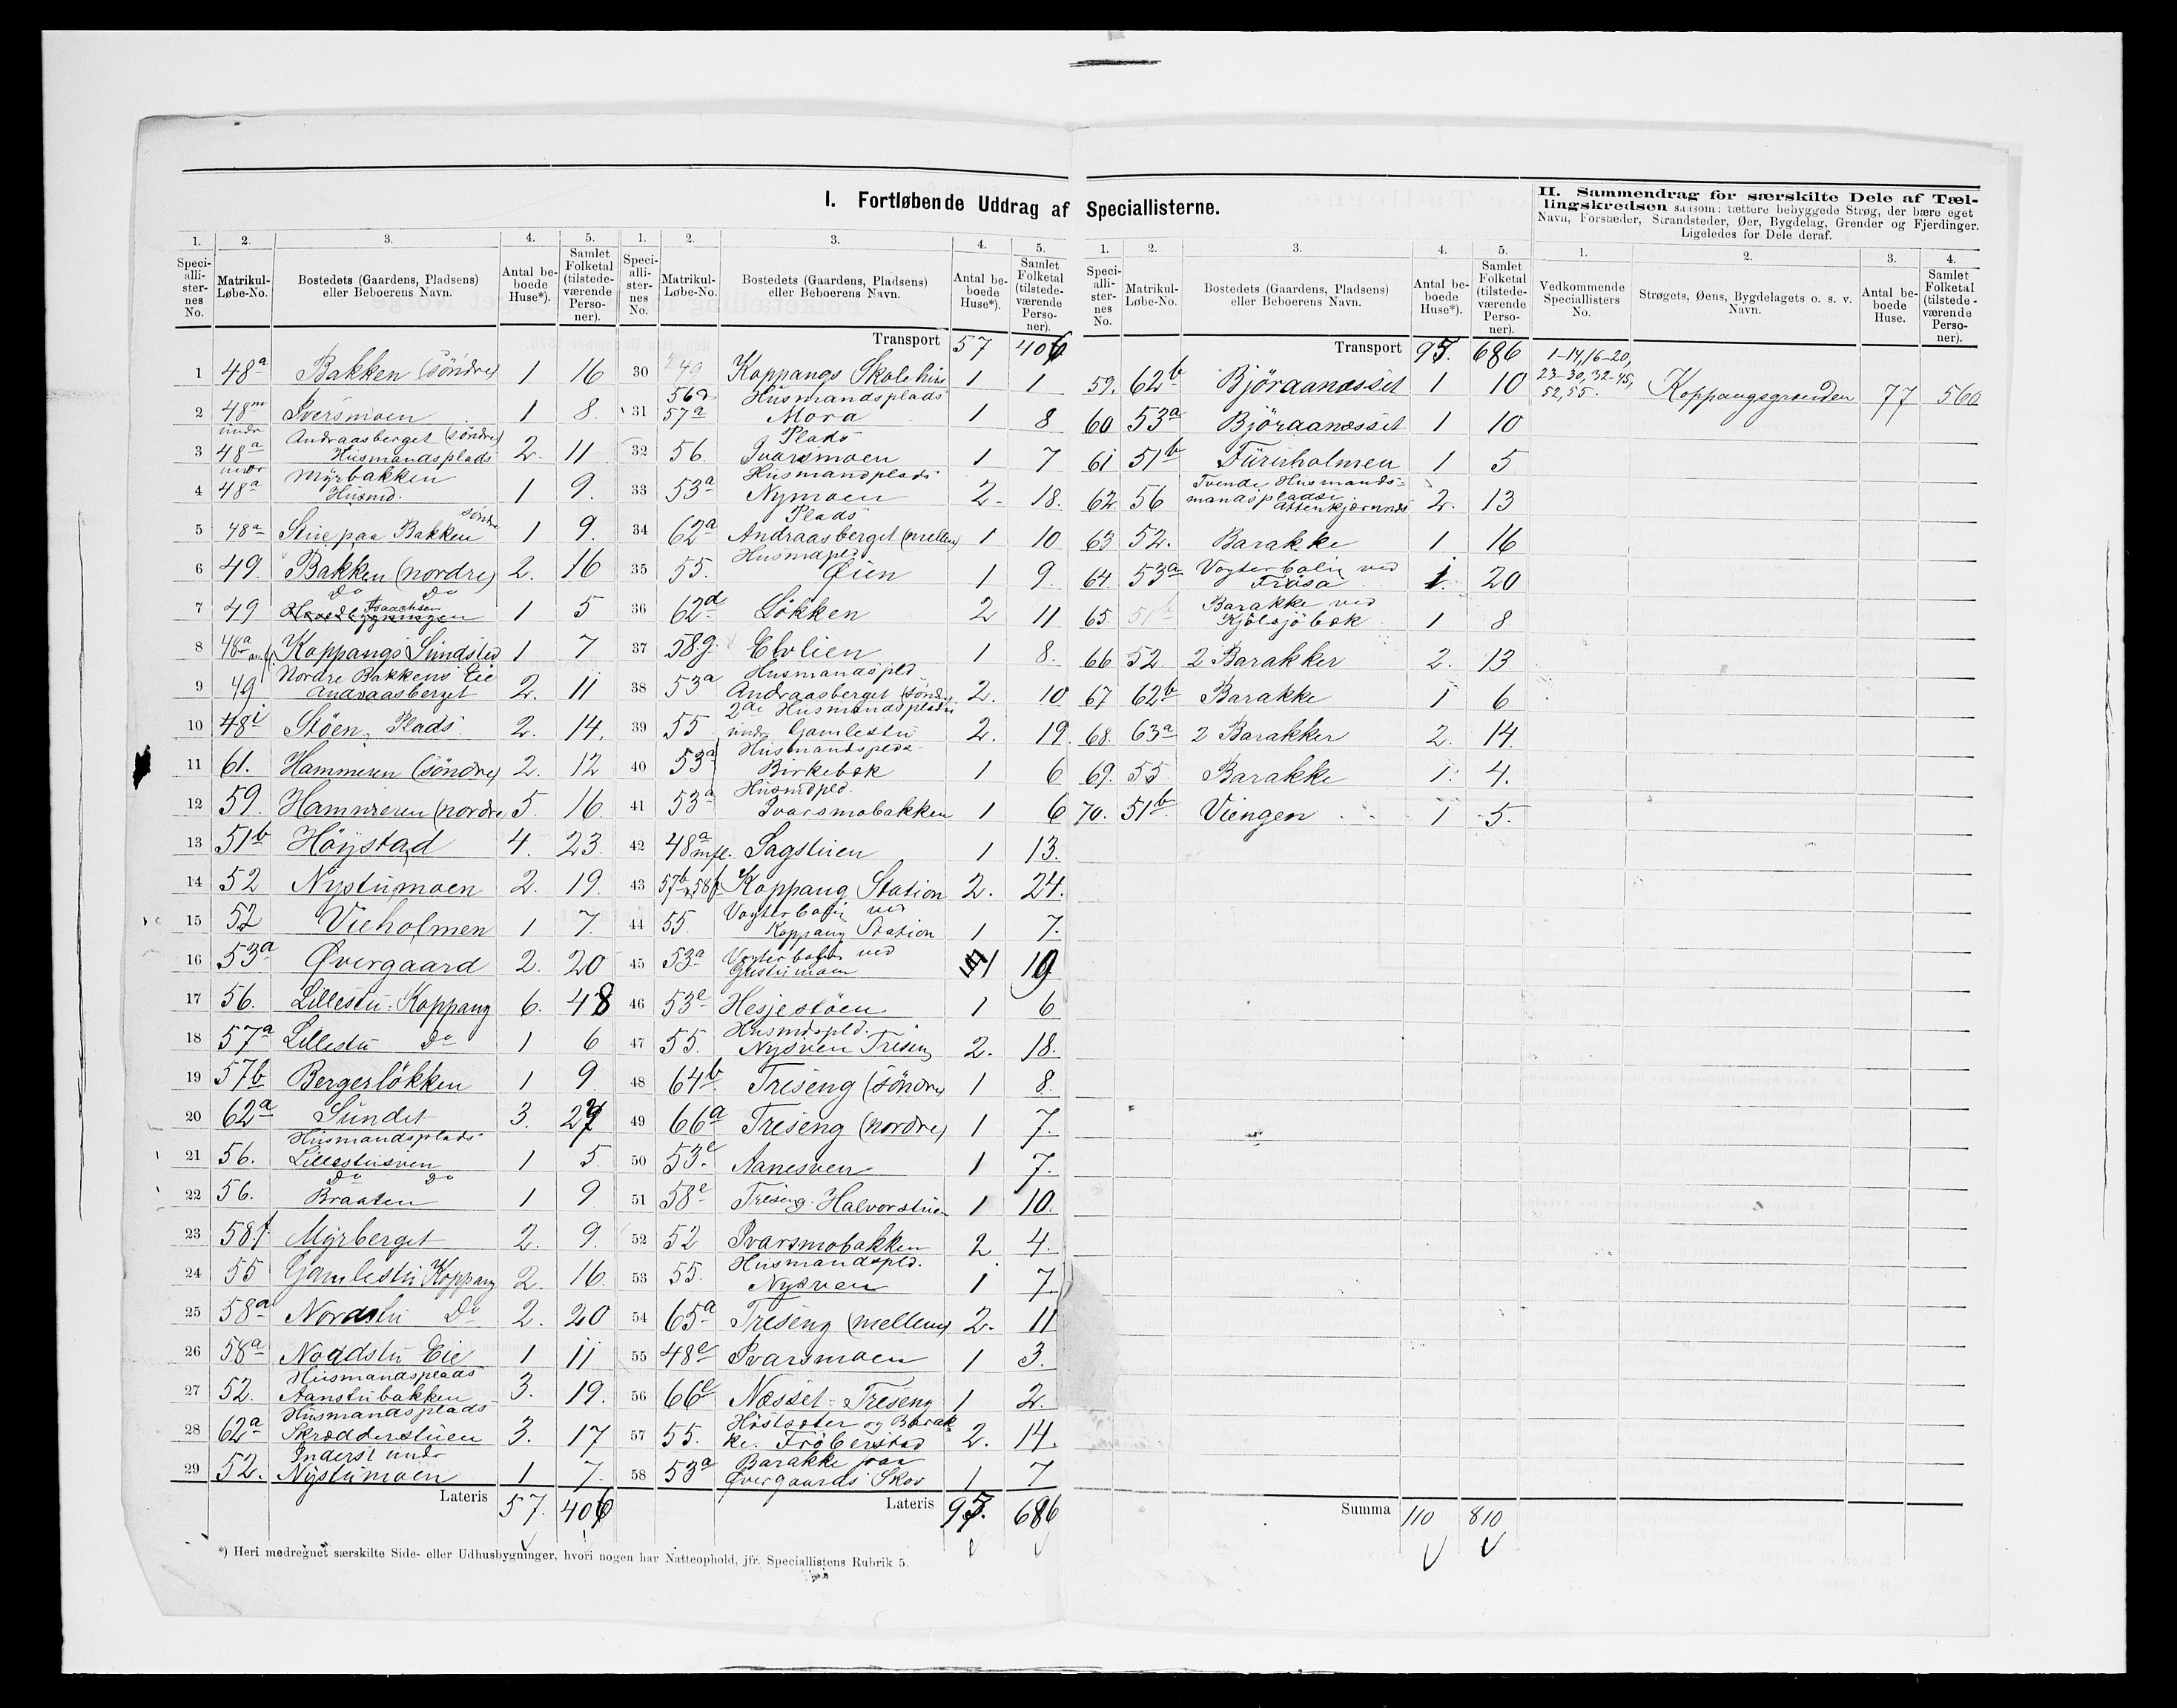 I. Fortløbende Uddrag af Speciallisterne.
1. 2. 3. 4. 5.
Speci-alli-ster-nes No. Matrikul-Løbe-No. Bostedets (Gaardens, Pladsens) eller Beboerens Navn. Antal be-boede Huse*). Samlet Folketal (tilstede-værende Perso-ner).
1 48a Bakken (söndre) 1 16
2 48m Iversmoen 1 8.
3 under 48a Andraasberget (söndre) Husmandsplads 2. 11
4 under 48a Myrbakken Husmd. 1 9.
5 48a Stue paa Bakken söndre 1 9.
6 49. Bakken (nordre) 2. 16
7 49 Do Do Isaachsen 1 5
8 48a Koppangs Sundsted 1 7
9 49 Nordre Bakkens Eie Andraasberget 2. 11
10 48i Stöen, Plads 2. 14.
11 61. Hammeren (söndre) 2. 12
12 59. Hammeren (nordre 5. 16.
13 51b Höystad 4. 23.
14 52 Nystumoen 2. 19.
15 52 Vieholmen 1 7.
16 53a Øvergaard 2. 20
17 56. Lillestu-Koppang 6. 48
18 57a Lillestu Do 1 6
19 57b Bergerlökken 1 9
20 62a Sundet 3. 27
21 56. Husmandsplads Lillestusven 1 5
22 56. Do Do Braaten 1 9
23 58f. Myrberget 2. 9.
24 55 Gamlestu Koppang 2. 16.
25 58a Nordstu Do 2. 20
26 58a Nordstu Eie 1 11
27 52. Husmandsplads Aanstubakken 3. 19.
28 62a Husmandsplads Skrædderstuen 3. 17
29 52. Inderst under Nystumoen 1 7.
Lateris 57. 406
*) Heri medregnet særskilte Side- eller Udhusbygninger, hvori nogen har Natteophold, jfr. Speciallistens Rubrik 5.
1. 2. 3. 4. 5.
Speci-alli-ster-nes No. Matrikul-Løbe-No. Bostedets (Gaardens, Pladsens) eller Beboerens Navn. Antal be-boede Huse*). Samlet Folketal (tilstede-værende Perso-ner).
Transport 57 406
30 49 Koppangs Skolehus 1 1
31 56a 57a Husmandsplads Mora 1 8
32 56 Plads Ivarsmoen 1 7
33 53a Husmandplads Nymoen 2- 18.
34 62a Plads Andraasberget (mellem) 1 10
35 55. Husmdpld Øien 1 9.
36 62d Lökken 2 11
37 58.g. Elvlien 1 8.
38 53a Husmandspld Andraasberget (söndre) 2. 10
39 55 2de Husmandspladse under Gamlestu 2. 19.
40 53a Husmandsplds. Birkebæk 1 6
41 53a Husmdpld. Ivarsmobakken 1 6
42 48a mfl. Sagstuen 1 13.
43 57b 58f Koppang Station 2. 24.
44 55. Vogterbolig ved Koppang Station 1 7.
45 53a Vogterbolig ved 1 19
46 53e Hesjestöen 1 6
47 55. Husmdspld. Nysven Treseng 2. 18.
48 64b. Treseng (söndre) 1 8.
49 66a Treseng (nordre) 1 7.
50 53e Aanesven 1 7.
51 58e Treseng. Halvorstuen 1 10.
52 52 Ivarsmobakken 2 4.
53 55. Husmandspld. Nysven 1 7.
54 65a Treseng (mellem) 2- 11
55 48e Ivarsmoen 1 3.
56 66e Næsset-Treseng 1 2.
57 55. Höstsæter og Barak-ke. Fröberstad 2. 14.
58 53a Barakke paa Øvergaards Skov 1 7
Lateris 95. 686
1. 2. 3. 4. 5.
Speci-alli-ster-nes No. Matrikul-Løbe-No. Bostedets (Gaardens, Pladsens) eller Beboerens Navn. Antal be-boede Huse*). Samlet Folketal (tilstede-værende Perso-ner).
Transport 95. 686
59. 62b Björaanæsset 1 10
60 53a Björaanæsset 1 10
61 51b Furuholmen 1 5
62 56 Tvende Husmands-mandspladse 2. 13
63 52. Barakke 1 16
64. 53a Vogterbolig ved Frösa 1. 20
65 51b Barakke ved Kjölsjöbæk 1 8
66 52. 2 Barakker 2. 13
67 62b Barakke 1 6
68. 63a 2 Barakker 2. 14.
69. 55 Barakke 1. 4.
70. 51b Viengen 1 5.
Summa 110 810
II. Sammendrag for særskilte Dele af Tæl-
lingskredsen saasom: tættere bebyggede Strøg, der bære eget
Navn, Forstæder, Strandsteder, Øer, Bygdelag, Grender og Fjerdinger.
Ligeledes for Dele deraf.
1. 2. 3. 4.
Vedkommende Speciallisters No. Strøgets, Øens, Bygdelagets o. s. v. Navn. Antal be-boede Huse. Samlet Folketal (tilstede-værende Perso-ner).
1-14, 16-20, 23-30, 32-45, 52, 55. Koppangsgrenden 77 560